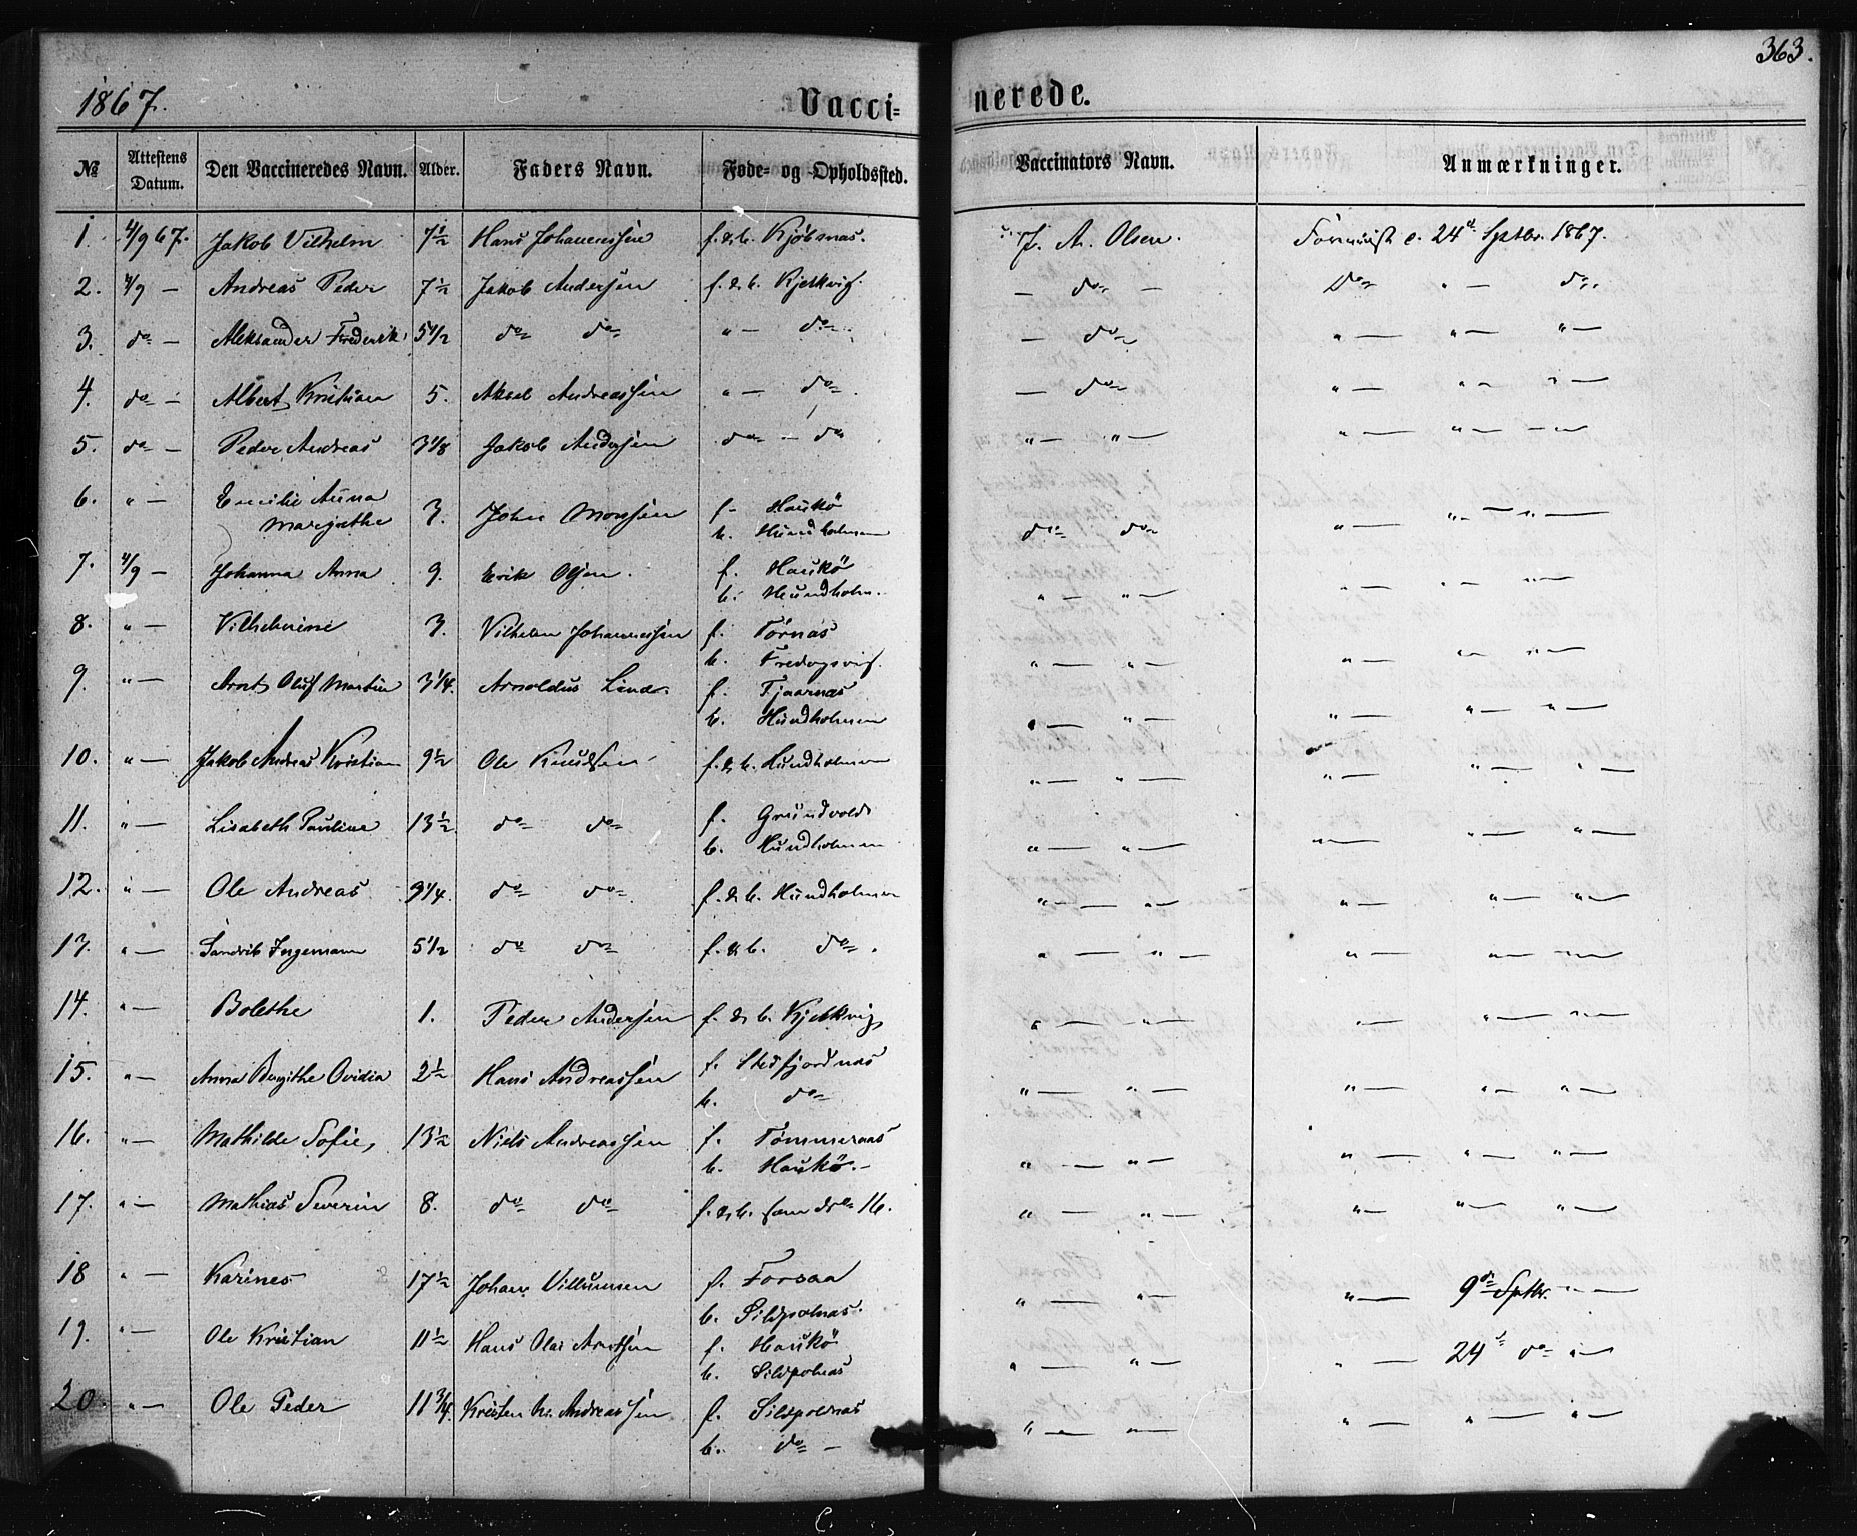 363.
1867.
Vacci- nerede.
№ Attestens Datum. Den Vaccineredes Navn. Alder. Faders Navn. Føde- og Opholdssted. Vaccinators Navn. Anmærkninger.
1. 4/9 67. Jakob Vilhelm 7 1/2 Hans Johannessen f. & b. Kjöbnas. J. A. Olsen. 24d Sptbr. 1867.
2. 4/9 — Andreas Peder 7 1/2 Jakob Andersen f. & b. Kjelkvig. — do — Do " — do
3. do — Aleksander Frederik 5 1/2 do do " — do — do " — " — " —
4. do — Albert Kristian 5. Aksel Andreassen " — do — do " — " — " —
5. do — Peder Andreas 3 1/8 Jakob Andersen do — do " — " — " — " — " —
6. " — Emilie Anna
Margrethe 3. John Monsen f. Haukö
b. Hundholmen do do " — " — " —
7. 4/9 — Johanna Anna 9. Erik Olsen. f. Haukö
b. Hundholm. " — " — " — " — " —
8. " — Vilhelmine 3. Vilhelm Johannessen f. Törnas
b. Fredagsvig. " — " — " — " — " —
9. " — Arnt Oluf Martin 3 1/4. Arnoldus Lind f. Tjaarnas
b. Hundholmen " — " — " — " — " —
10. " — Jakob Andreas Kristian 9 1/2 Ole Knudsen f. & b. Hundholmen " — " — " — " — " —
11. " — Lisabeth Pauline 13 1/2 do do f. Grundvold
b. Hundholmen " — " — " — " — " —
12. " — Ole Andreas 9 1/4. do do f. & b. Hundholmen " — " — " — " — " —
13. " — Ingemann 5 1/2 do do f. & b. do. " — " — " — " — " —
14. " — Bolethe 1. Peder Andersen f. & b. Kjelkvig " — " — " — " — " —
15. " — Anna Bergithe Ovidia 2 1/2 Hans Andreassen f. Stefjordnas
b. do " — " — " — " — " —
16. " — Mathilde Sofie, 13 1/2 Niels Andreassen f. Tömmeraas
b. Haukö. — " — " — " — " — " —
17. " — Mathias Severin 8. do do f. & b. som 16. " — " — " — " — " —
18 " — Karines 17 1/2 Johan Villumsen f. Forsaa
b. Sildpolnas. " — " — " — 9de Sptbr. " —
19. " — Ole Kristian 11 1/2 Hans Olai Arntsen f. Haukö
b. Sildpolnas " — " — " — 24d do " —
20. " — Ole Peder 11 3/4. Kristen Andreassen f. Sildpolnas
b. do — " — " — " — " — " —